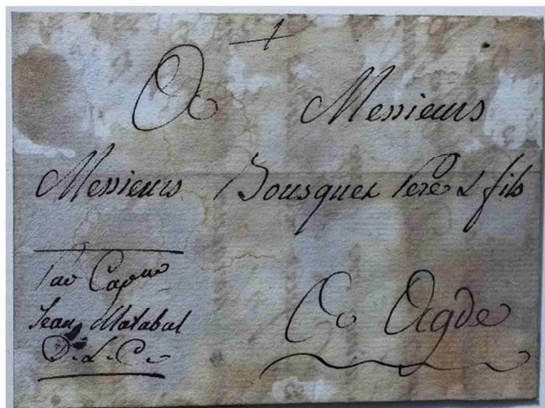 A Messieurs
Messieurs Bousquet Pere & fils
Par Capne
Jean Matabal
D. L. C.
A Agde